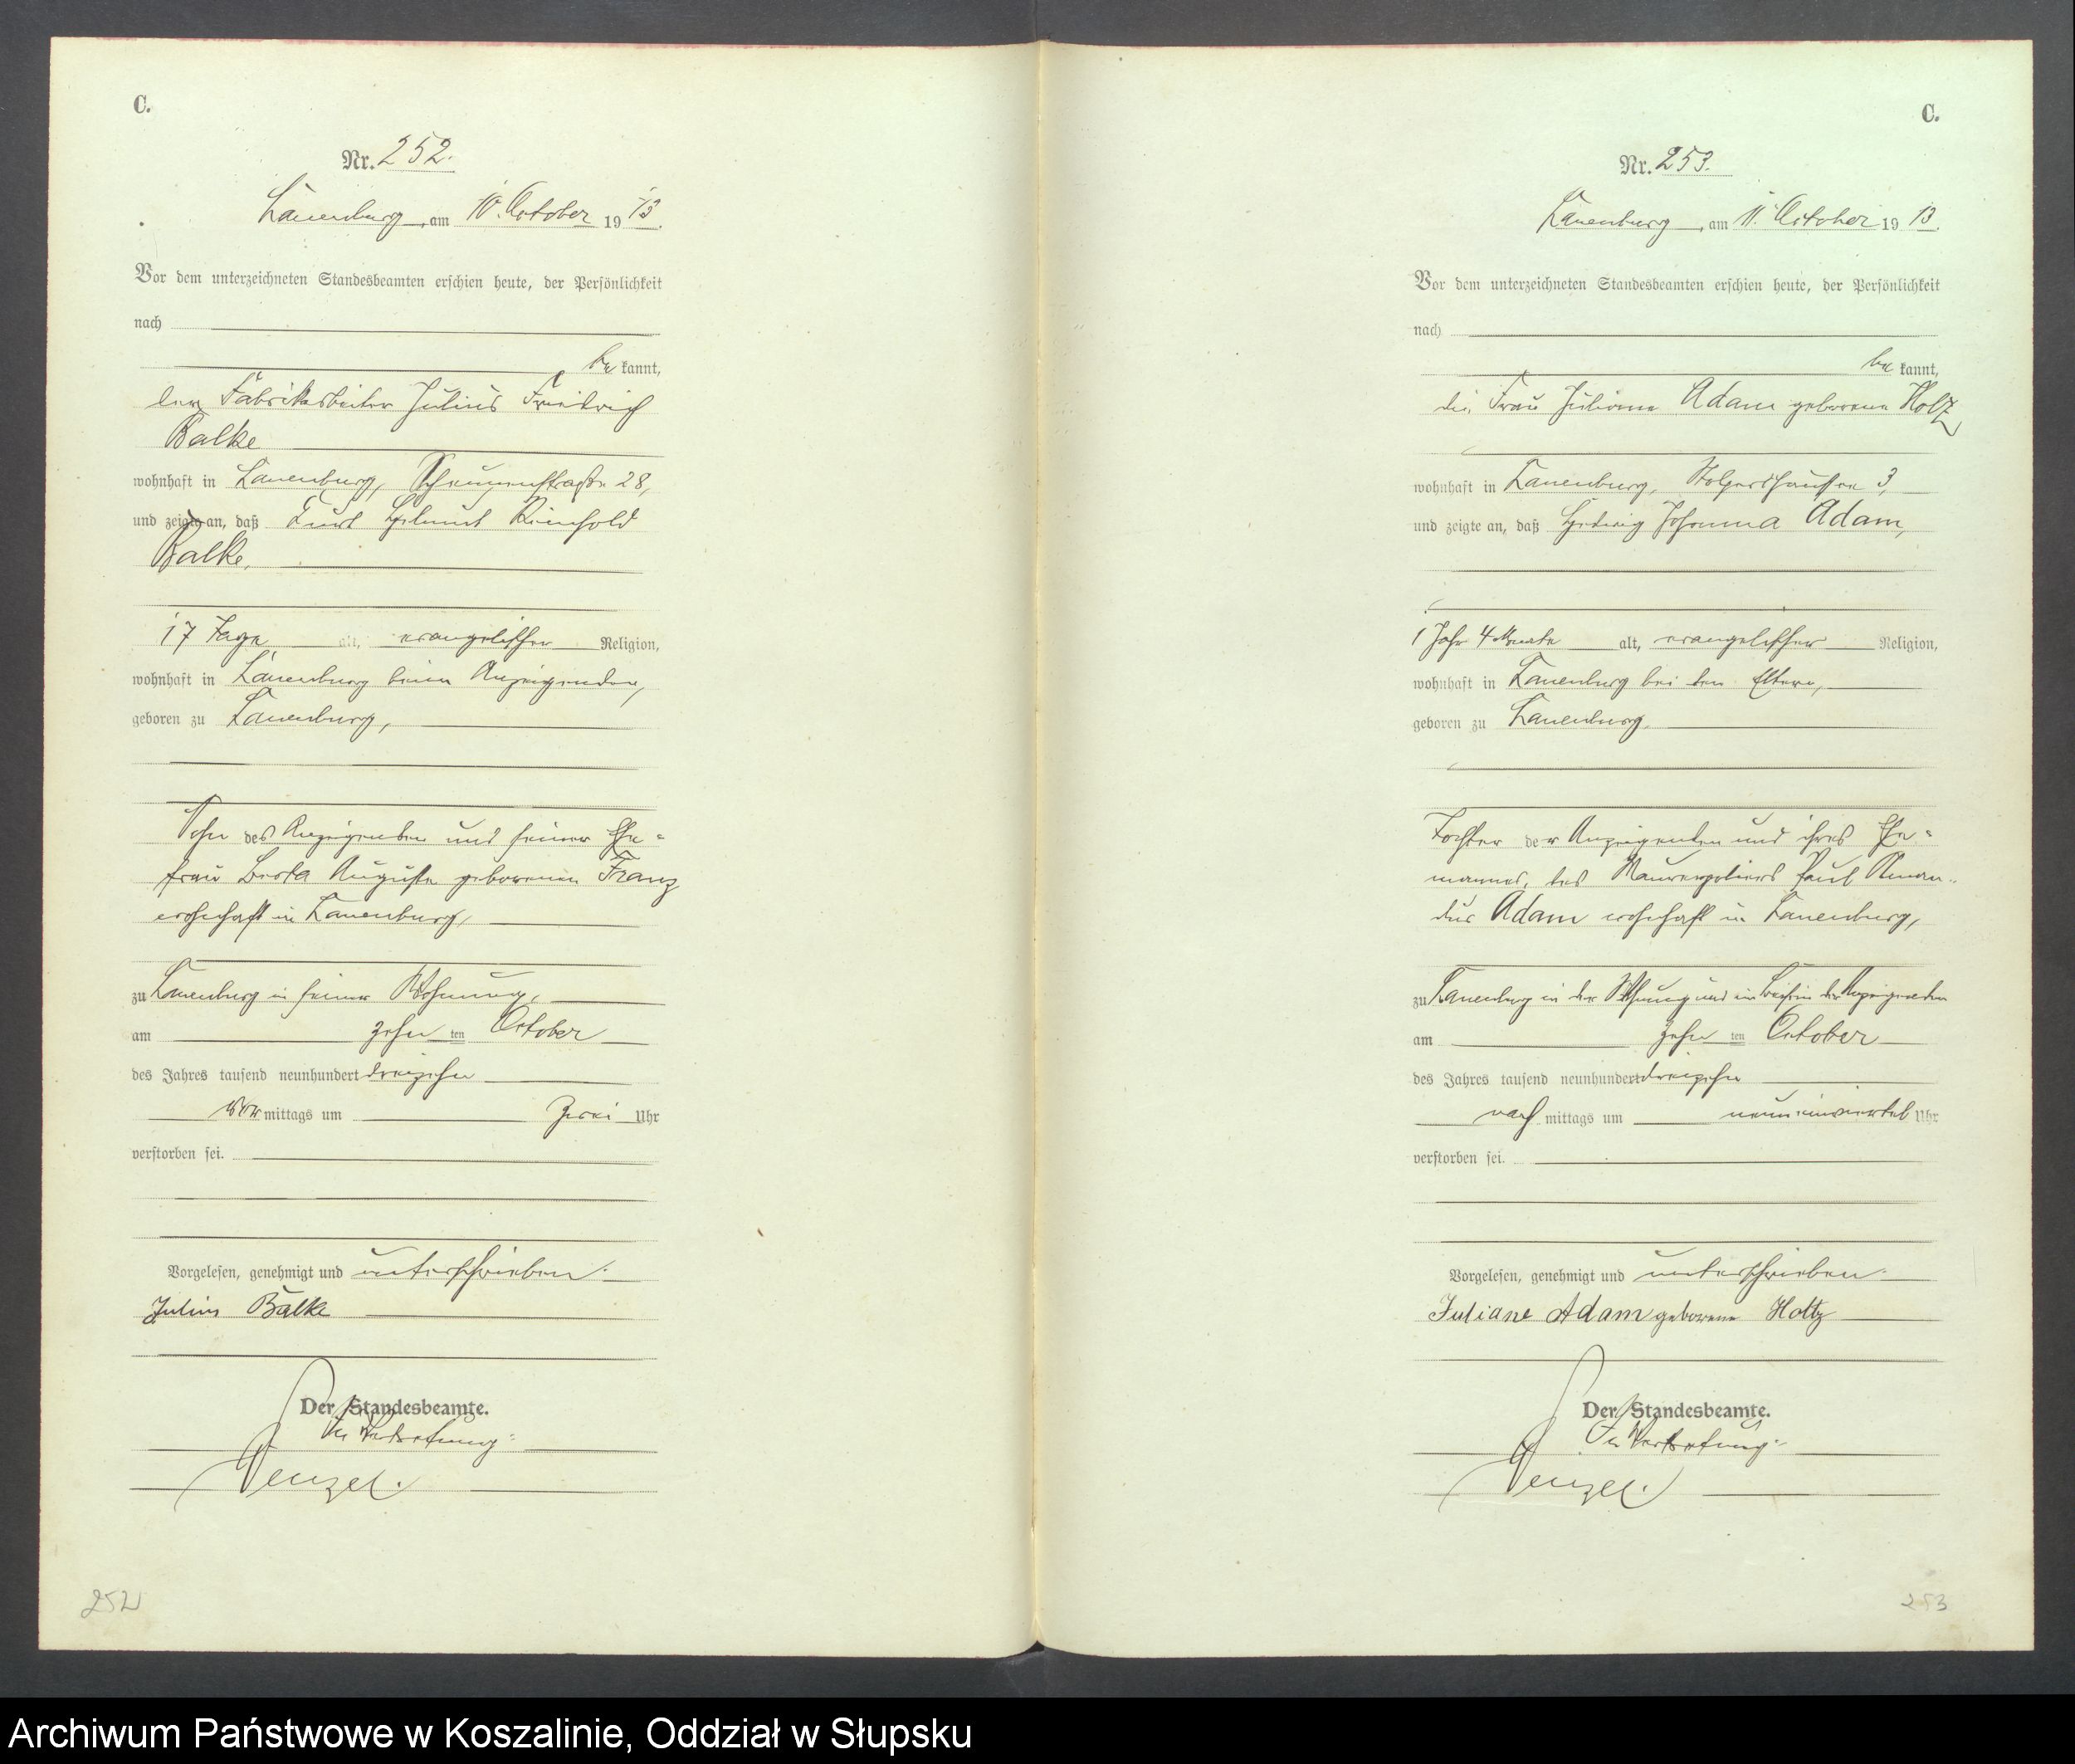 C.
Nr. 252.
Lauenburg, am 10. October 1913.
Vor dem unterzeichneten Standesbeamten erschien heute, der Persönlichkeit
nach
be kannt,
der Fabrikarbeiter Julius Friedrich
Balke
wohnhaft in Lauenburg, Scheunenstraße 28,
und zeigte an, daß Kurt Helmut Reinhold
Balke,
17 Tage alt, evangelischer Religion,
wohnhaft in Lauenburg beim Anzeigenden,
geboren zu Lauenburg,
Sohn des Anzeigenden und seiner Ehe-
frau Berta Auguste geborenen Franz
wohnhaft in Lauenburg,
zu Lauenburg in seiner Wohnung,
am zehn ten October
des Jahres tausend neunhundert dreizehn
vor mittags um zwei Uhr
verstorben sei.
Vorgelesen, genehmigt und unterschrieben.
Julius Balke
Der Standesbeamte.
In Vertretung:
Wenzel.
252
C.
Nr. 253.
Lauenburg, am 11. October 1913.
Vor dem unterzeichneten Standesbeamten erschien heute, der Persönlichkeit
nach
be kannt,
die Frau Juliane Adam geborene Holtz
wohnhaft in Lauenburg, 3,
und zeigte an, daß Hedwig Johanna Adam,
1 Jahr 4 Monate alt, evangelischer Religion,
wohnhaft in Lauenburg bei den Eltern,
geboren zu Lauenburg,
Tochter der Anzeigenden und ihres Ehe-
mannes, des Maurerpoliers Paul Aman-
dus Adam wohnhaft in Lauenburg,
zu Lauenburg in der Wohnung und im Beisein der Anzeigenden
am zehn ten October
des Jahres tausend neunhundert dreizehn
nach mittags um neuneinviertel Uhr
verstorben sei.
Vorgelesen, genehmigt und unterschrieben.
Juliane Adam geborene Holtz
Der Standesbeamte.
In Vertretung:
Wenzel.
253
Archiwum Państwowe w Koszalinie, Oddział w Słupsku